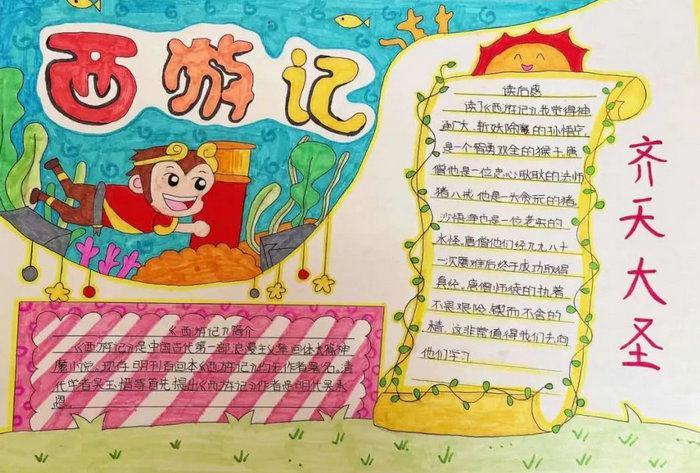 西游记
读后感
读了《西游记》,我觉得神
通广大、斩妖除魔的孙悟空,
是一个智勇双全的猴子,唐
僧他是一位忠心耿耿的法师
猪八戒他是一头贪玩的猪
沙悟净也是一位老实的
水怪,唐僧他们经九九八十
一次磨难后终于成功取得
真经。唐僧师徒的执著
不畏艰险、锲而不舍的
精 这非常值得我们去向
他们学习
齐天大圣
《西游记》简介
《西游记》是中国古代第一部浪漫主义章回体长篇神
魔小说。现存明刊百回本《西游记》均无作者署名。清
代学者吴玉搢等首先提出《西游记》作者是明代吴承
恩。